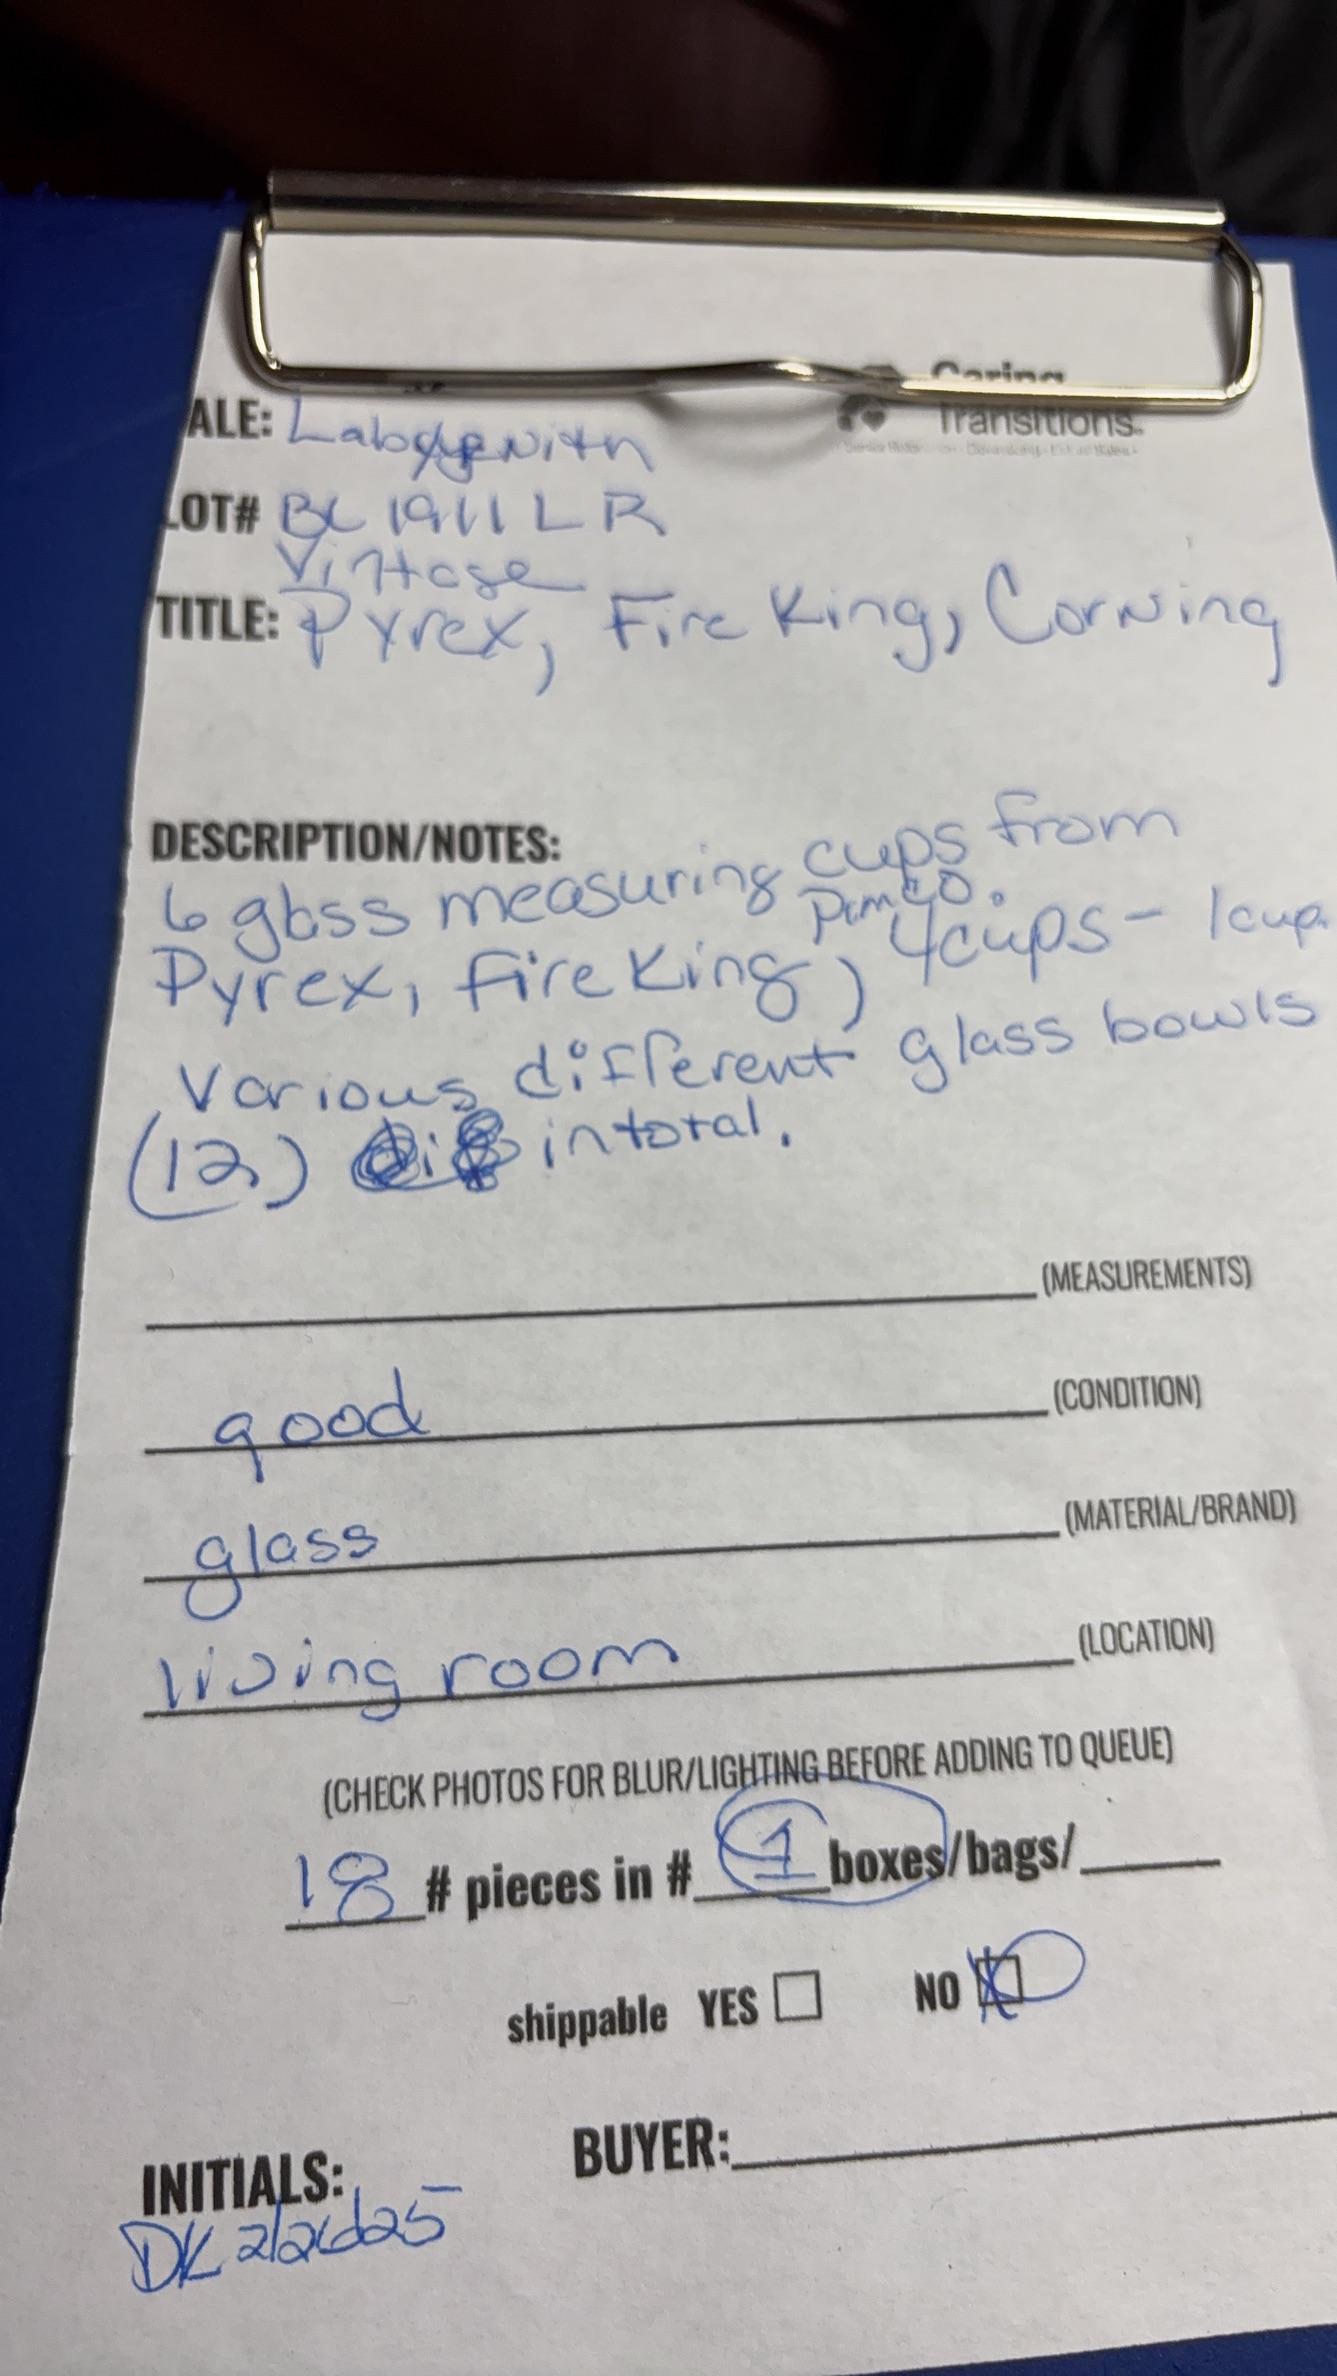 Caring
Transitions.
ALE:
LOT# BC 1911 LR
Vintage
TITLE: Pyrex, Fire King, Corning
DESCRIPTION/NOTES:
6 glass measuring cups from
Pyrex, Fire King, 4cups - 1cup.
Various different glass bowls
(12) in total.
(MEASUREMENTS)
good (CONDITION)
glass (MATERIAL/BRAND)
living room (LOCATION)
(CHECK PHOTOS FOR BLUR/LIGHTING BEFORE ADDING TO QUEUE)
18 # pieces in # 1 boxes/bags/
shippable YES NO
BUYER:
INITIALS:
DK 2/26/25